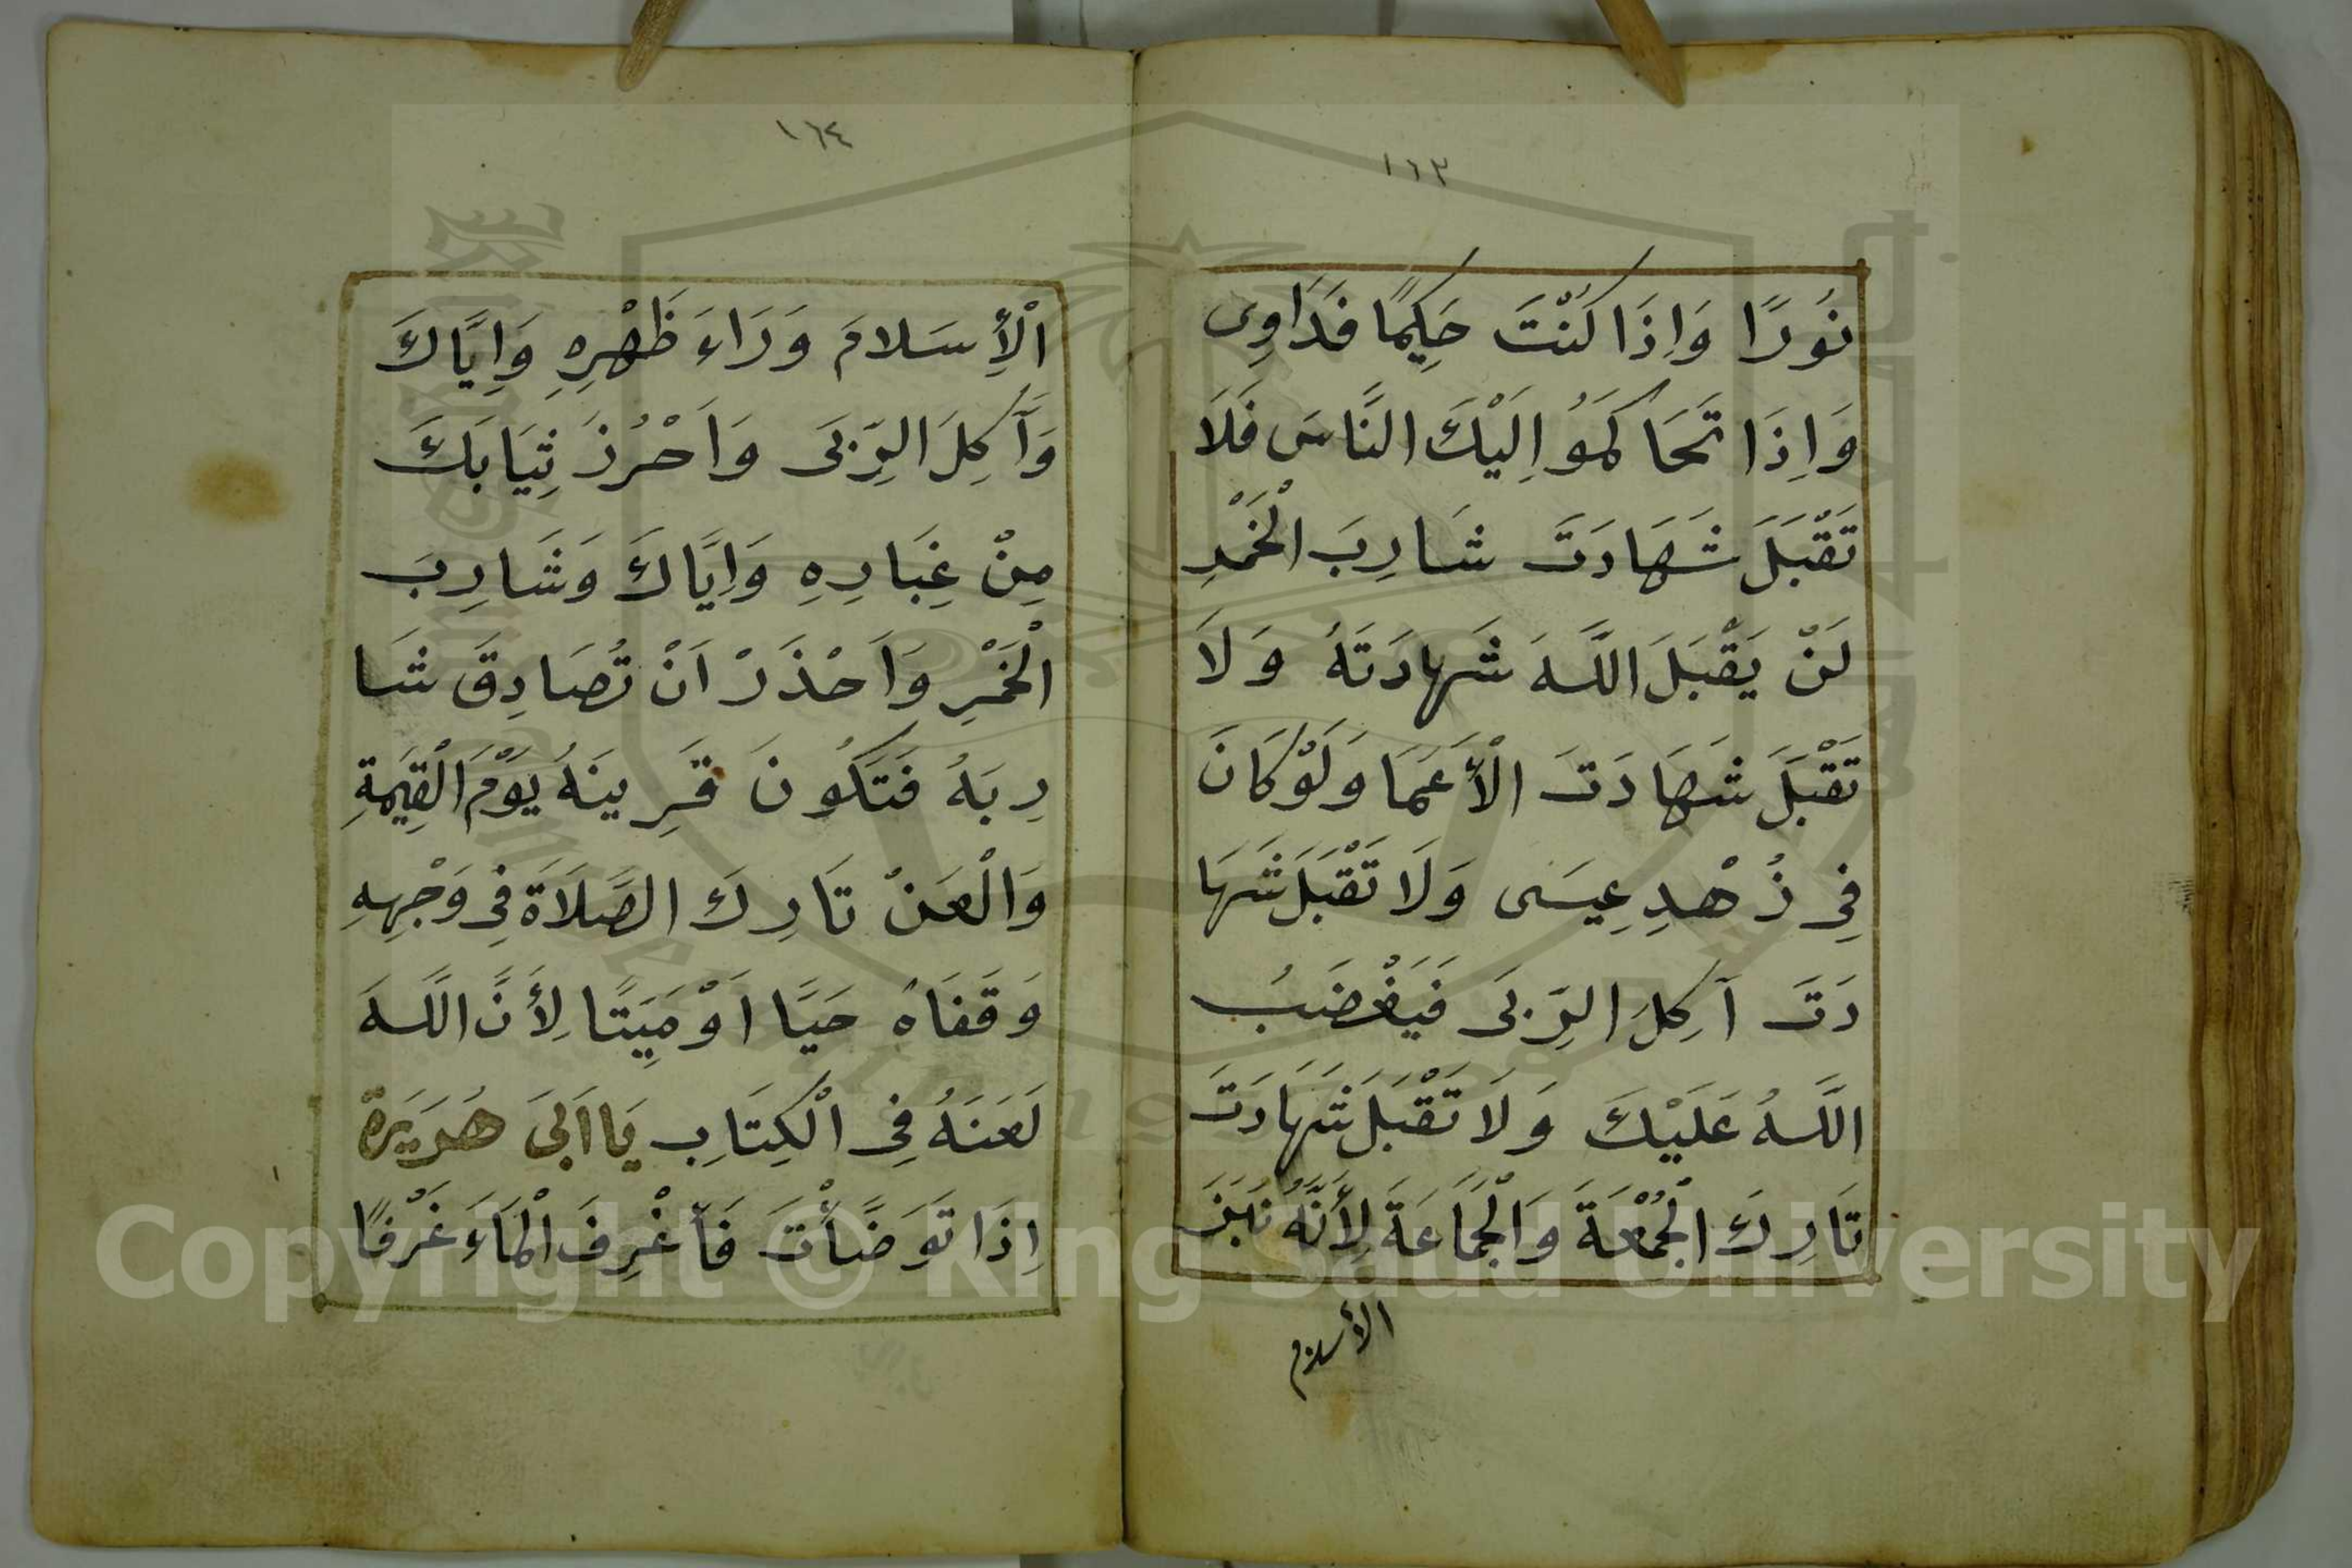 ١٦٣
نُورًا وَاِذَا كُنْتَ حَكِيمًا فَدَاوِى
وَاِذَا تَحَاكَمَوُ اِلَيْكَ النَّاسَ فَلَا
تَقْبَلَ شَهَادَتَ شَارِبَ الْخَمْرِ
لَنْ يَقْبَلَ اللَّهَ شَهادَتَهُ وَلَا
تَقْبَلَ شَهَادَتَ الْأَعَمَا وَلَوْكَانَ
فِى زُهْدِ عِيسَى وَلَا تَقْبَلَ شَهَا
دَتَ آكِلَ الرِّبَى فَيَغْضَبُ
اللَّهُ عَلَيْكَ وَلَا تَقْبَلَ شَهَادَتَ
تَارِكَ الْجُمْعَةَ وَالْجَمَاعَةَ لِأَنَّهُ نَبَزَ
الأسلام
١٦٤
الْأِسَلامَ وَرَاءَ ظَهْرِهِ وَاِيَّاكَ
وَآكِلَ الرِّبَى وَاَحْرُزَ ثِيَابَكَ
مِنْ غِبَارِهِ وَاِيَّاكَ وَشَارِبَ
الْخَمْرِ وَاَحْذَرْ اَنْ تُصَادِقَ شَا
رِبَهُ فَتَكُونَ قَرِينَهُ يَوْمَ الْقِيَمَةِ
وَالْعَنْ تَارِكَ الصَّلَاَةَ فِى وَجْهِهِ
وَقَفَاهُ حَيًّا اَوْ مَيِّتًا لِأَنَّ اللَّهَ
لَعَنَهُ فِى الْكِتَابِ يَا اَبَى هُرَيَرَة
اِذَا تَوَضَّأْتَ فَأَغْرِفَ الْمَاءَ غَرْفًا
Copyright © King Saud University